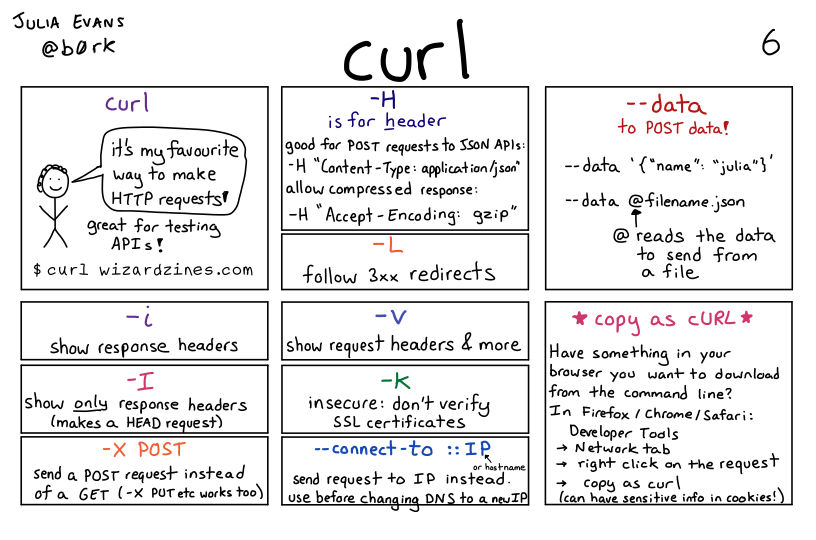 JULIA EVANS
@b0rk
curl
6
curl
it's my favourite
way to make
HTTP requests!
great for testing
APIs!
$ curl wizardzines.com
-H
is for header
good for POST requests to JSON APIs:
-H "Content-Type: application/json"
allow compressed response:
-H "Accept-Encoding: gzip"
-L
follow 3xx redirects
--data
to POST data!
--data '{"name": "julia"}'
--data @filename.json
@ reads the data
to send from
a file
-i
show response headers
-I
show only response headers
(makes a HEAD request)
-X POST
send a POST request instead
of a GET (-X PUT etc works too)
-v
show request headers & more
-k
insecure: don't verify
SSL certificates
--connect-to ::IP
or hostname
send request to IP instead.
use before changing DNS to a new IP
★ copy as cURL ★
Have something in your
browser you want to download
from the command line?
In Firefox/Chrome/Safari:
Developer Tools
→ Network tab
→ right click on the request
→ copy as curl
(can have sensitive info in cookies!)